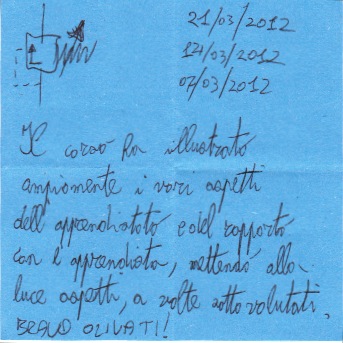 21/03/2012
14/03/2012
07/03/2012
Il corso ha illustrato
ampiamente i vari aspetti
dell'apprendistato e del rapporto
con l'apprendista, mettendo alla
luce aspetti, a volte sottovalutati.
BRAVO OLIVATI!